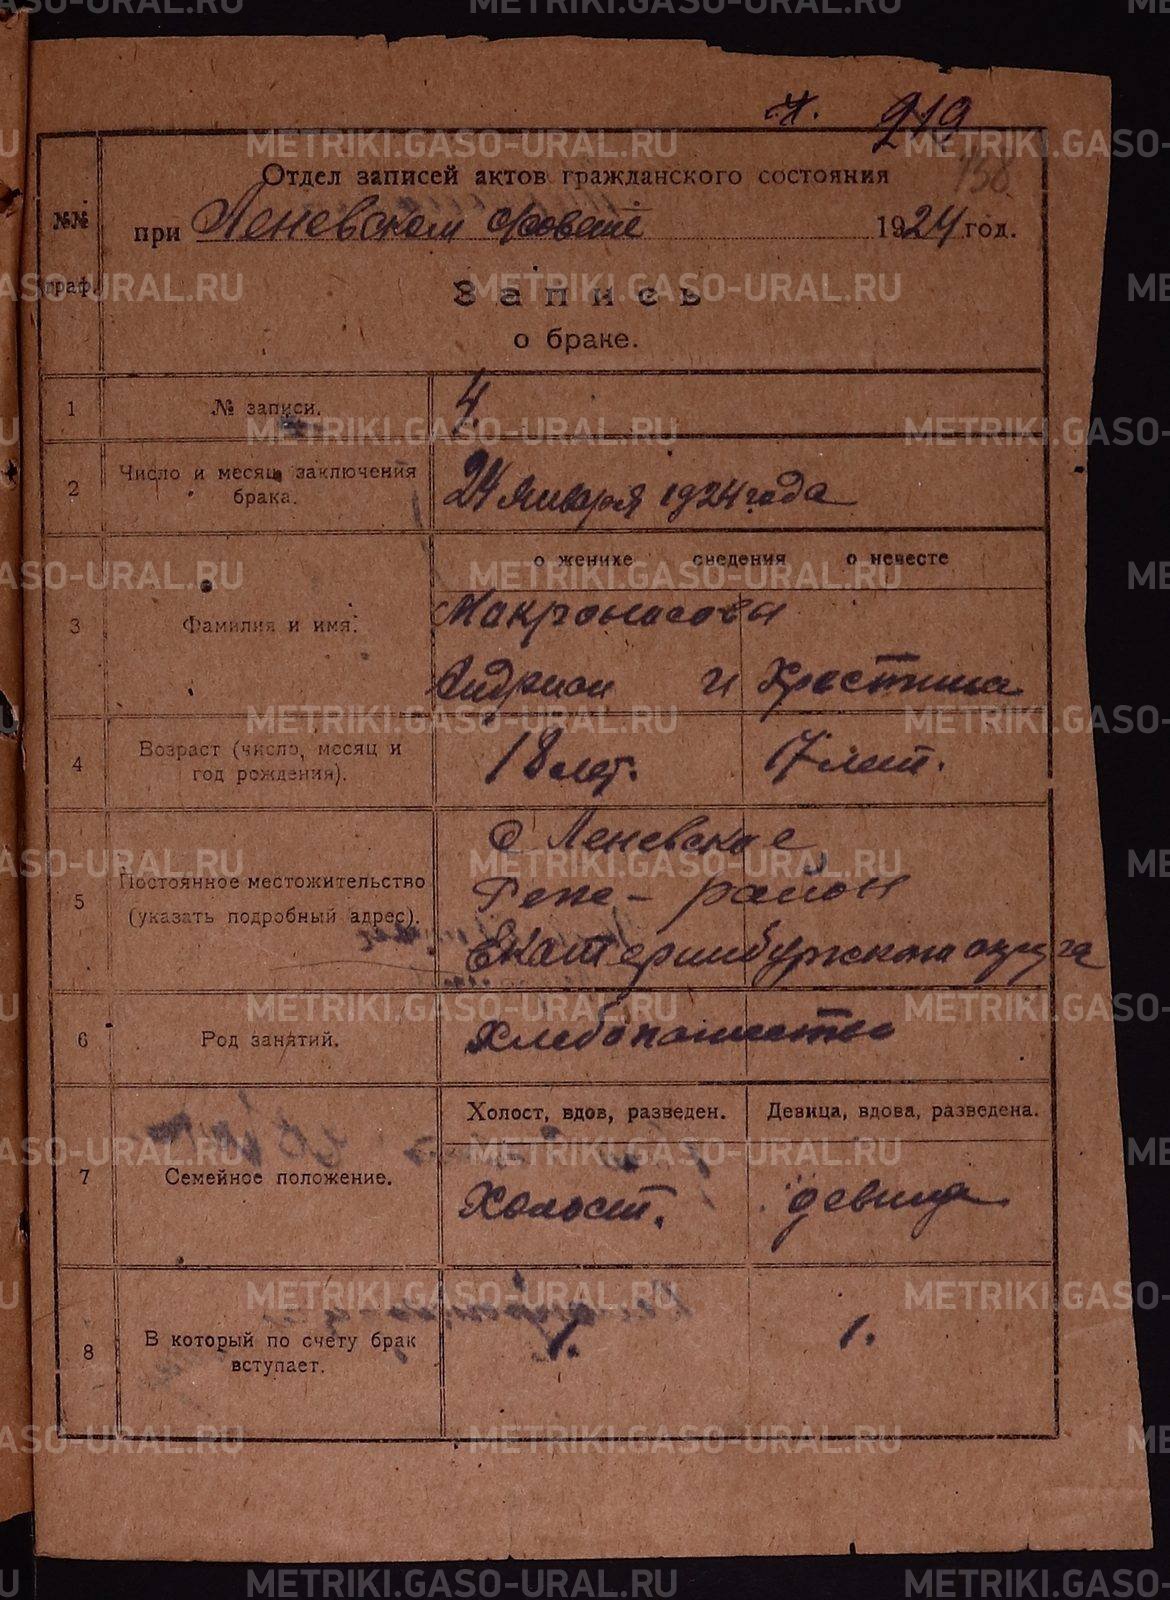 219
158
Отдел записей актов гражданского состояния
№№ граф.
при Леневском с/совете 1924 год.
Запись
о браке.
1 № записи. 4
2 Число и месяц заключения брака. 24 января 1924 года
о женихе сведения о невесте
3 Фамилия и имя. Макроносовы
Андриан и Хрестина
4 Возраст (число, месяц и год рождения). 18 лет. 17 лет.
5 Постоянное местожительство (указать подробный адрес). С Леневское
район
Екатеринбургского округа
6 Род занятий. Хлебопашество
Холост, вдов, разведен. Девица, вдова, разведена.
7 Семейное положение. Холост. девица
8 В который по счету брак вступает. 1. 1.
METRIKI.GASO-URAL.RU